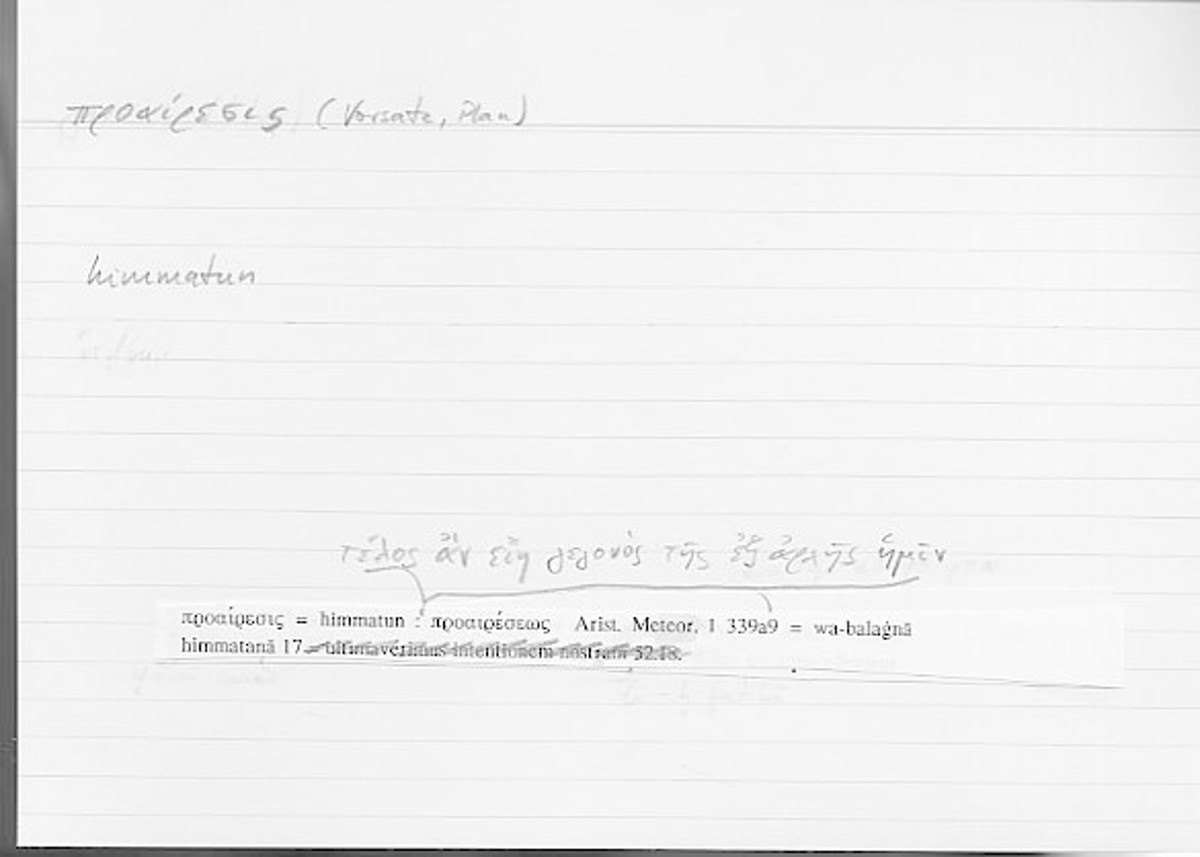 προαίρεσις (Vorsatz, Plan)
himmatun
τέλος ἂν εἴη γεγονὸς τῆς ἐξ ἀρχῆς ἡμῖν
προαίρεσις = himmatun : προαιρέσεως Arist. Meteor. I 339a9 = wa-balaġnā
himmatanā 17 = ultimaverimus intentionem nostram 52.18.